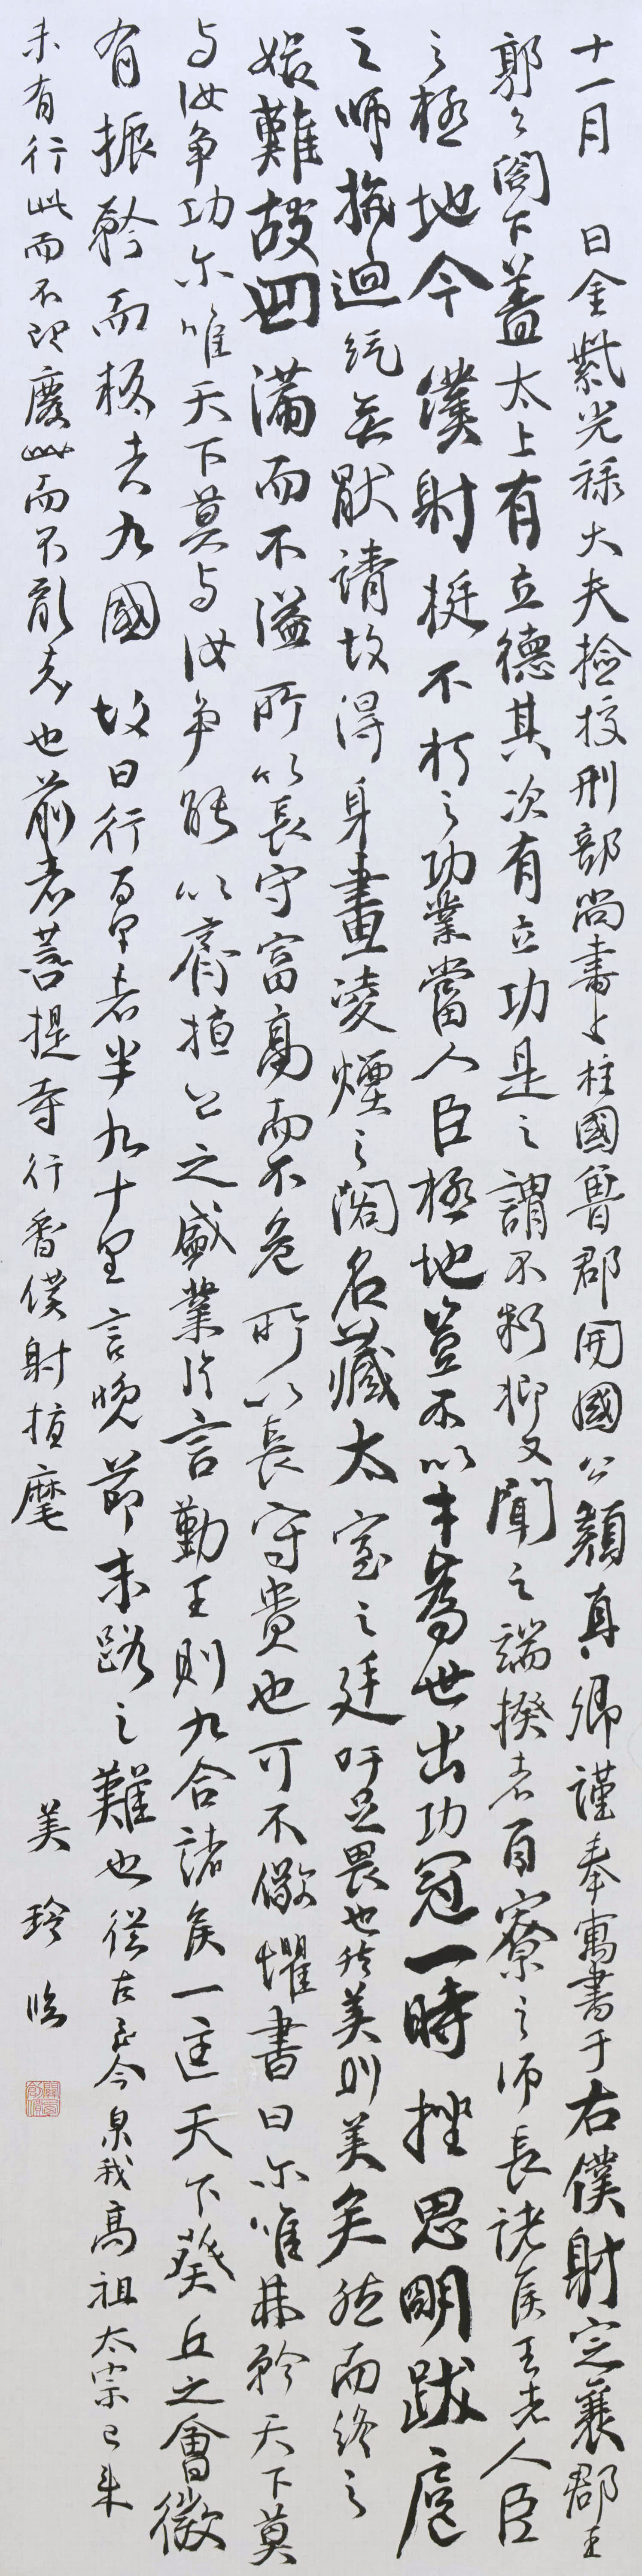 十一月 日金紫光祿大夫撿挍刑部尚書上柱國魯郡開國公顏真卿謹奉寓書于右僕射定襄郡王
郭公閣下蓋太上有立德其次有立功是之謂不朽抑又聞之端揆者百寮之師長諸侯王者人臣
之極地今僕射挺不朽之功業當人臣極地豈不以才為世出功冠一時挫思明跋扈
之師抗迴紇無厭請故得身畫凌煙之閣名藏太室之廷吁足畏也然美則美矣然而終之
始難故曰滿而不溢所以長守富高而不危所以長守貴也可不儆懼書曰尔唯弗矜天下莫
与汝爭功尔唯天下莫与汝爭能以齊桓公之盛業片言勤王則九合諸侯一匡天下葵丘之會微
有振矜而叛者九國故曰行百里者半九十里言晚節末路之難也從古至今泉我高祖太宗已来
未有行此而不理廢此而不亂者也前者菩提寺行香僕射指麾
美玲臨